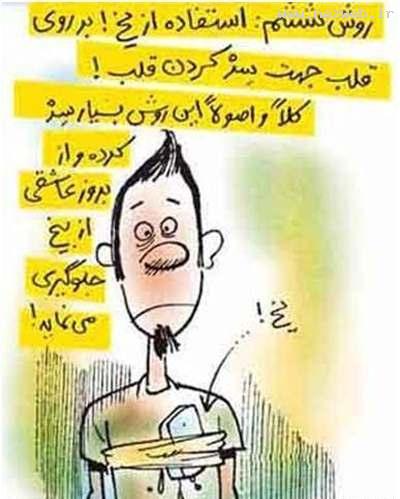 روش هشتم: استفاده از یخ! بر روی
قلب جهت سِرْ کردن قلب!
کلاً و اصولاً این روش بسیار سِرْ
کرده و از
بروز عاشقی
از بیخ
جلوگیری
می‌نماید!
یخ!